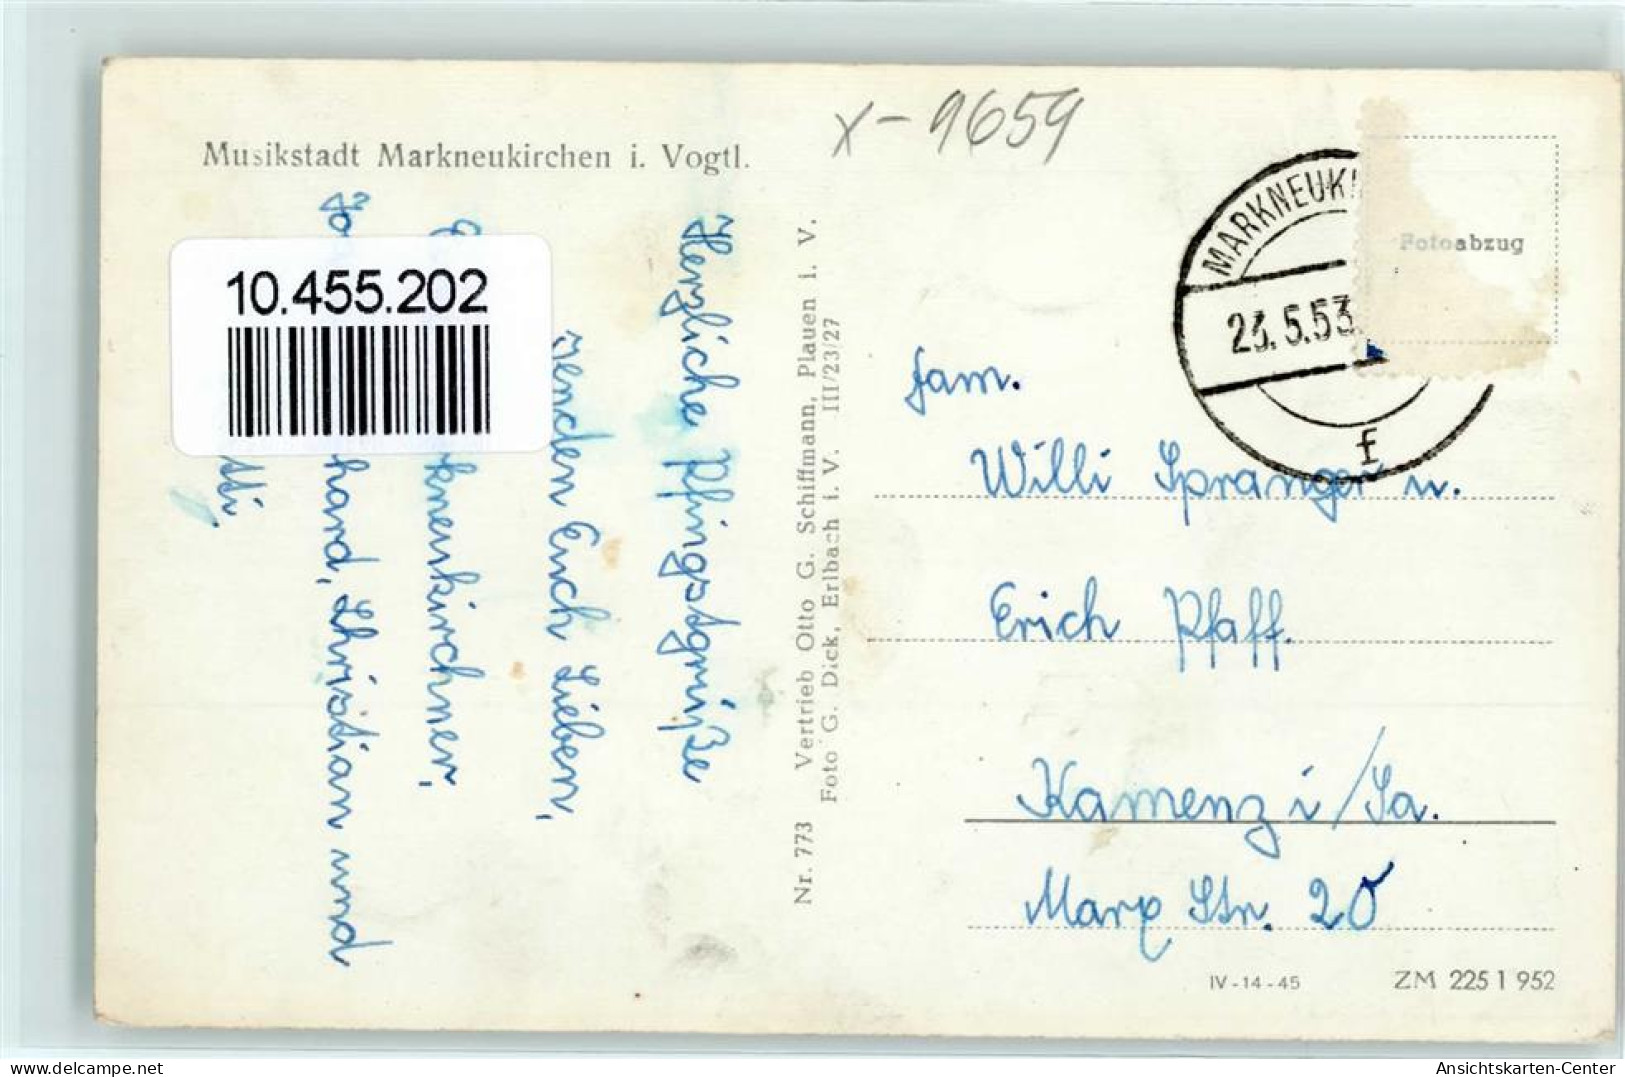 Musikstadt Markneukirchen i. Vogtl.
x-9659
10.455.202
Herzliche Pfingstgrüße
senden Euch Lieben,
kneukirchner,
hard, Christian und
Nr. 773 Vertrieb Otto G. Schiffmann, Plauen i. V.
Foto G. Dick, Erlbach i. V. III/23/27
MARKNEUKI
23.5.53
f
Fotoabzug
Fam.
Willi Spranger u.
Erich Pfaff.
Kamenz i/Sa.
Marx Str. 20
IV-14-45 ZM 225 1 952
Ansichtskarten-Center
the best way to collect